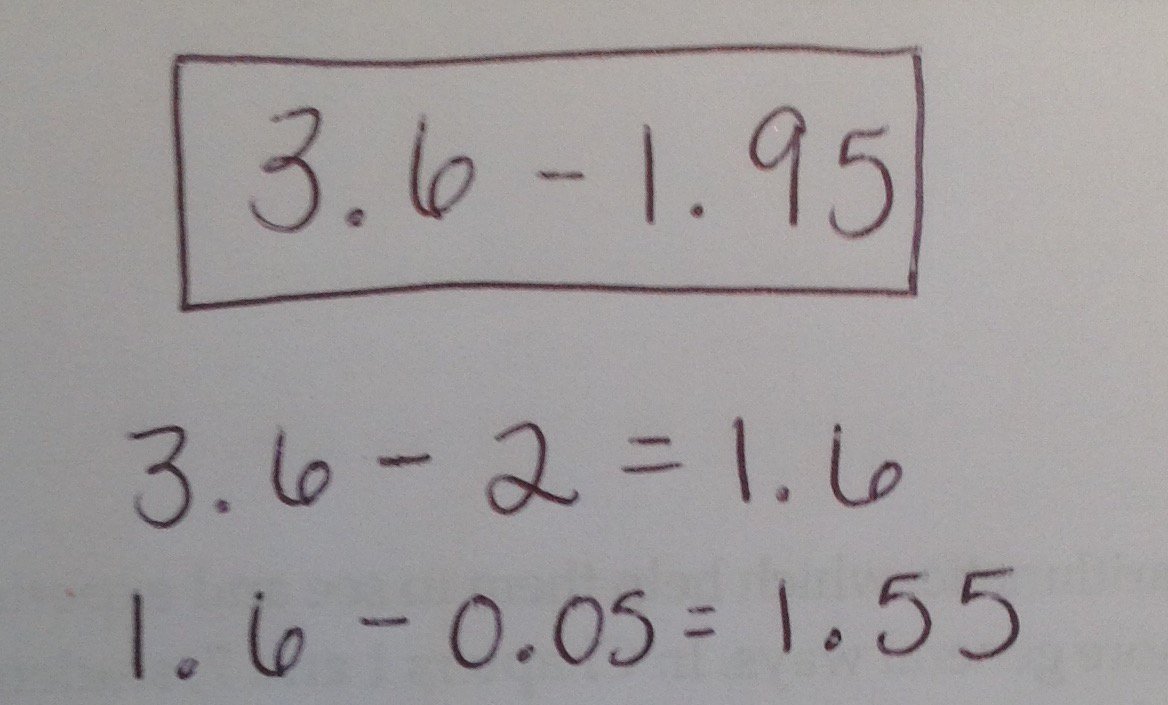 3.6 - 1.95
3.6 - 2 = 1.6
1.6 - 0.05 = 1.55